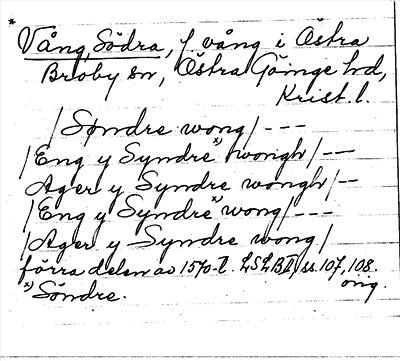 *
Vång, Södra, f. vång i Östra
Broby sn, Östra Göinge hd,
Krist. l.
/Søndre wong/ - - -
/Eng y Syndre *) wongh/ - -
Ager y Syndre wongh/ -
/Eng y Syndre *) wong/ - - -
/Ager y Syndre wong/
förra delen av 1570-t. LSLBII, ss. 107, 108.
orig.
*) Söndre.